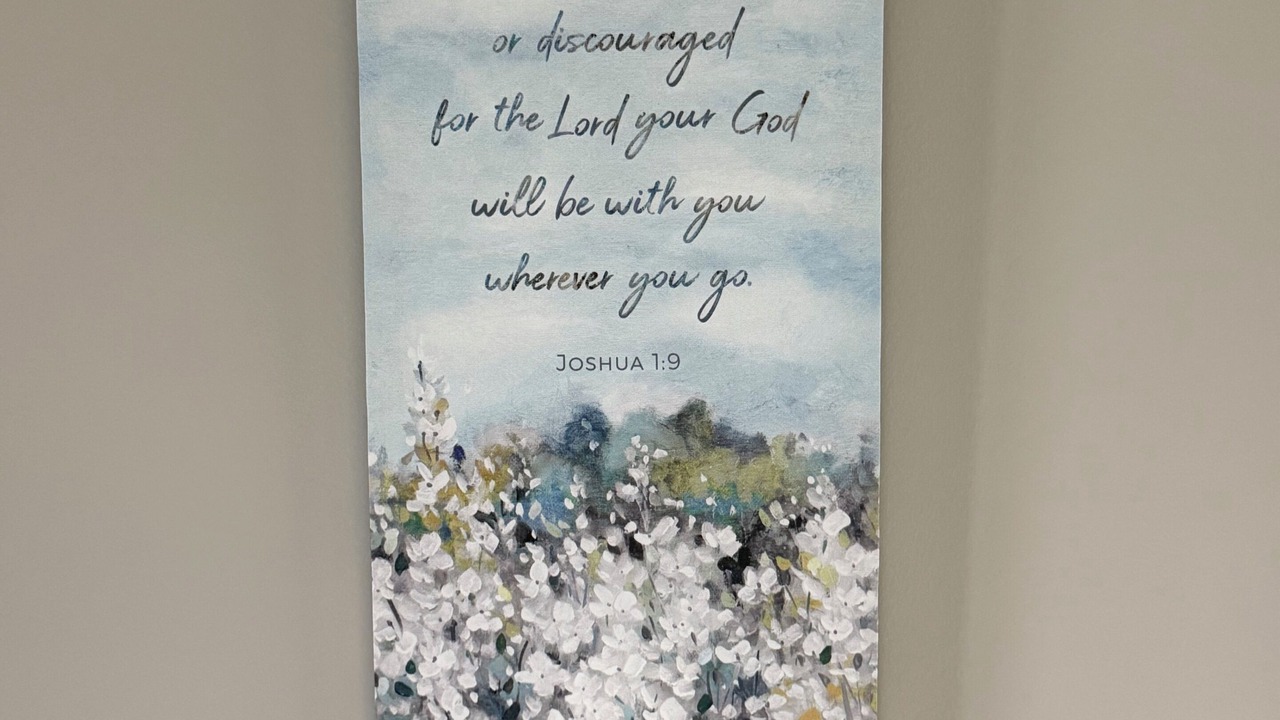 or discouraged
for the Lord your God
will be with you
wherever you go.
Joshua 1:9